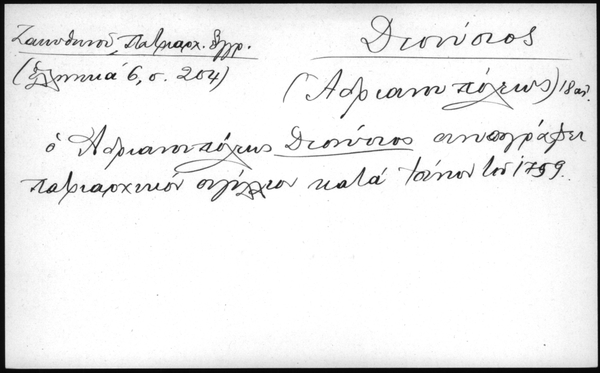 Ζακυθηνού, Πατριαρχ. Έγγρ.
(Ελληνικά 6, σ. 204)
Διονύσιος
(Αδριανουπόλεως) 18 αι.
ὁ Ἀδριανουπόλεως Διονύσιος συνυπογράφει
πατριαρχικόν σιγίλλιον κατά Ἰούνιον τοῦ 1759.